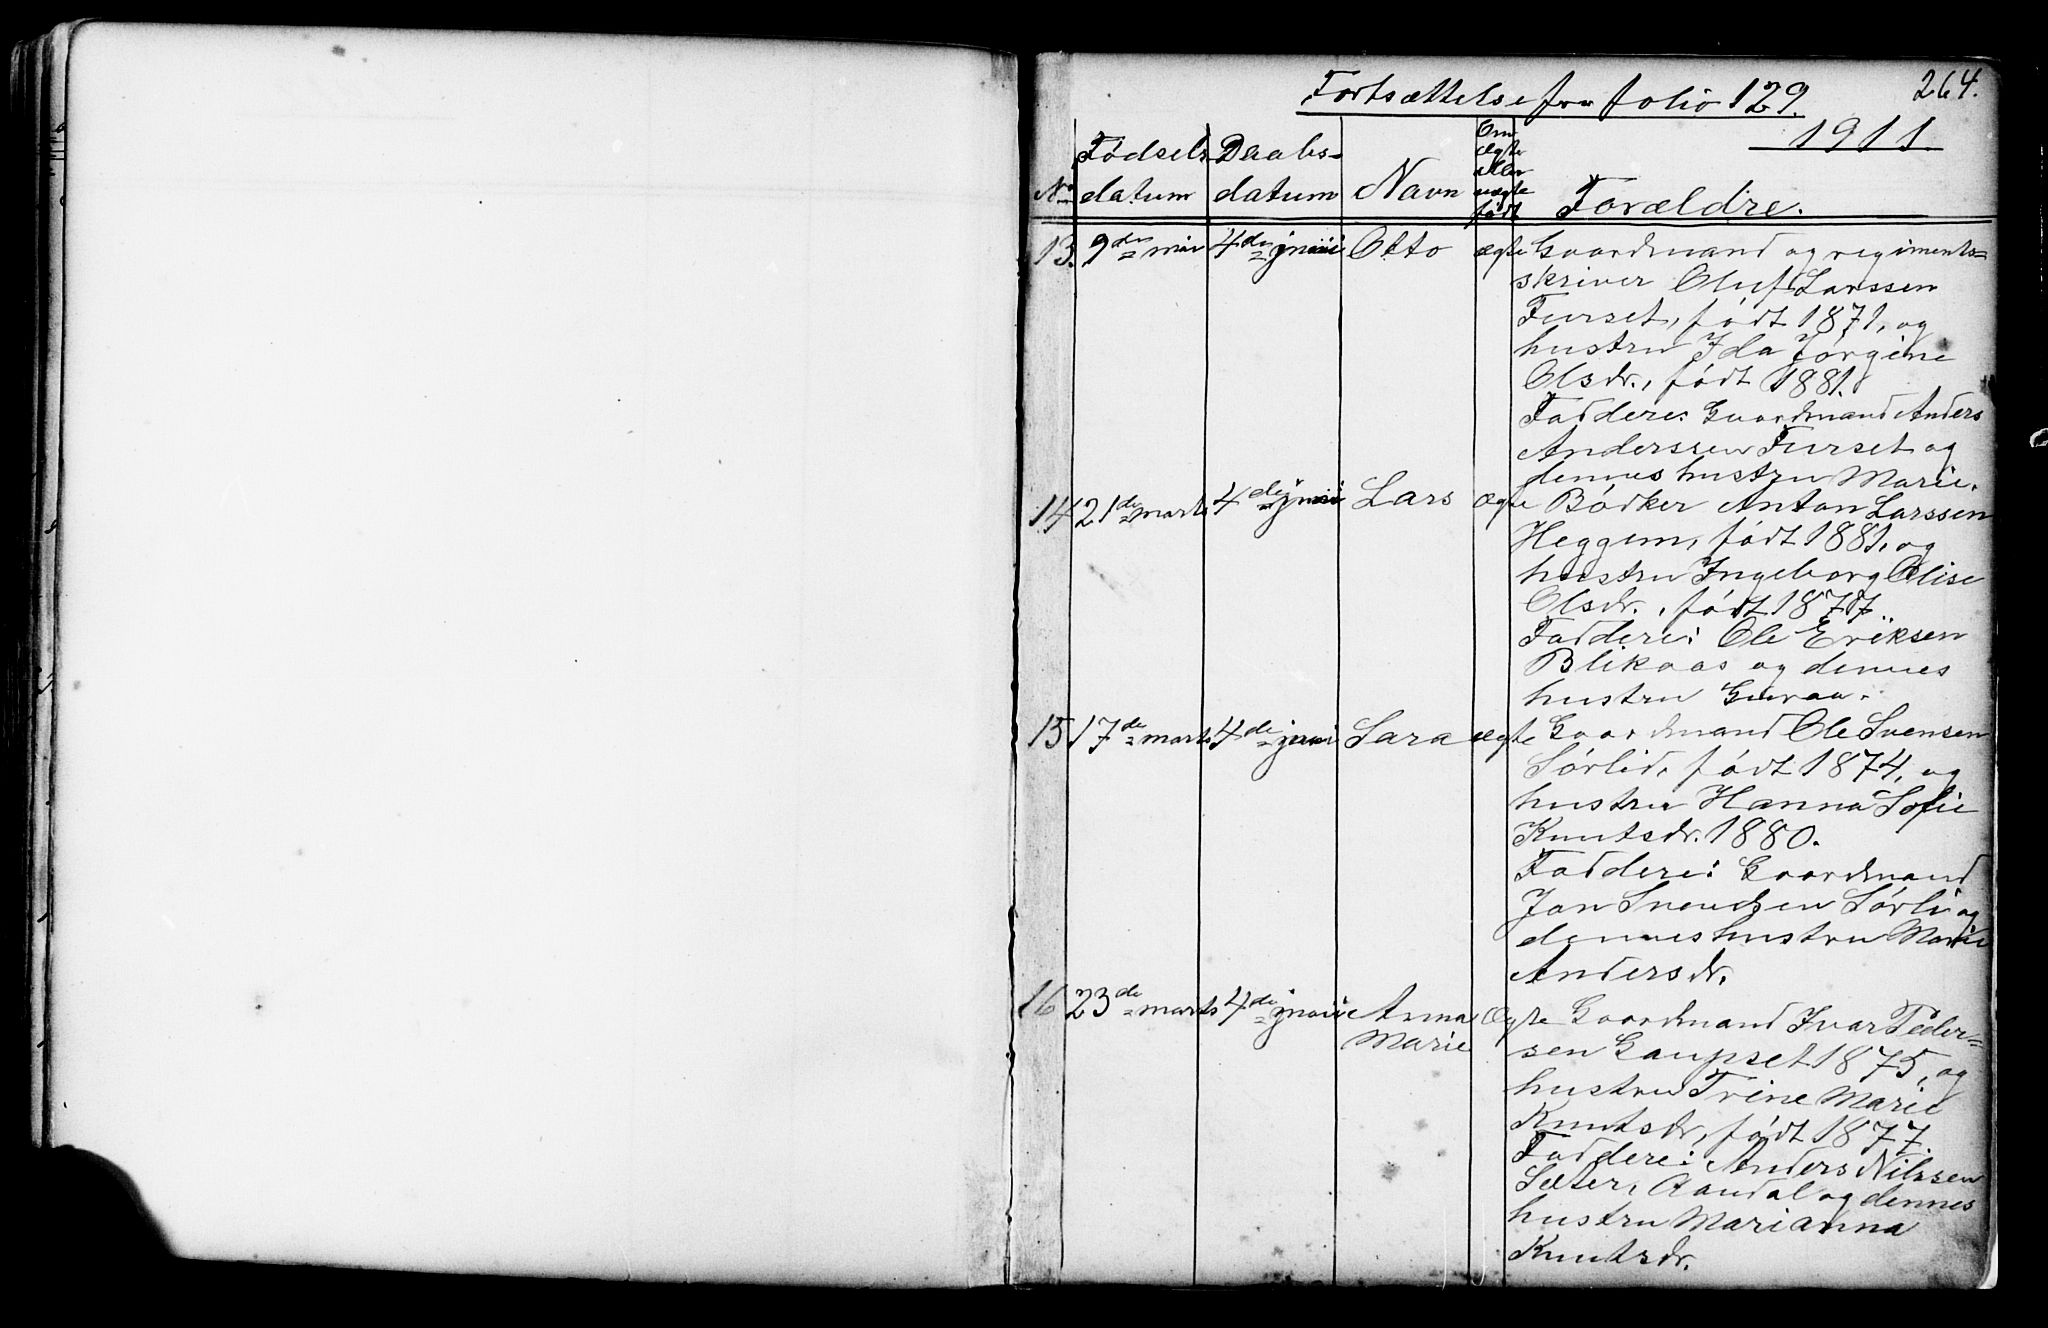 264.
Fortsættelse fra folio 129.
1911.
No
Fødsels-
datum
Daabs-
datum
Navn
Om
ægte
eller
uægte
født
Forældre.
13. 9de mai 4de juni Otto ægte Gaardmand og regiments-
skriver Oluf Larssen
Furset, født 1871, og
hustru Ida Jørgine
Olsdr., født 1881.
Faddere: Gaardmand Anders
Anderssen Furset og
dennes hustru Marie.
14 21de marts 4de juni Lars ægte Bødker Anton Larssen
Heggem, født 1881, og
hustru Ingeborg Elise
Olsdr., født 1877.
Faddere: Ole Eriksen
Blikaas og dennes
hustru Guraa.
15 17de marts 4de juni Sara ægte Gaardmand Ole Svensen
Sørlid, født 1874, og
hustru Hanna Sofie
Knutsdr. 1880.
Faddere: Gaardmand
Jon Svendsen Sørli og
dennes hustru Marie
Andersdr.
16 23de marts 4de juni Anna ægte Gaardmand Ivar Peder-
Marie sen Gaupset 1875, og
hustru Trine Marie
Knutsdr, født 1877.
Faddere: Anders Nilssen
Sæter, Aandal og dennes
hustru Marianna
Knutsdr.